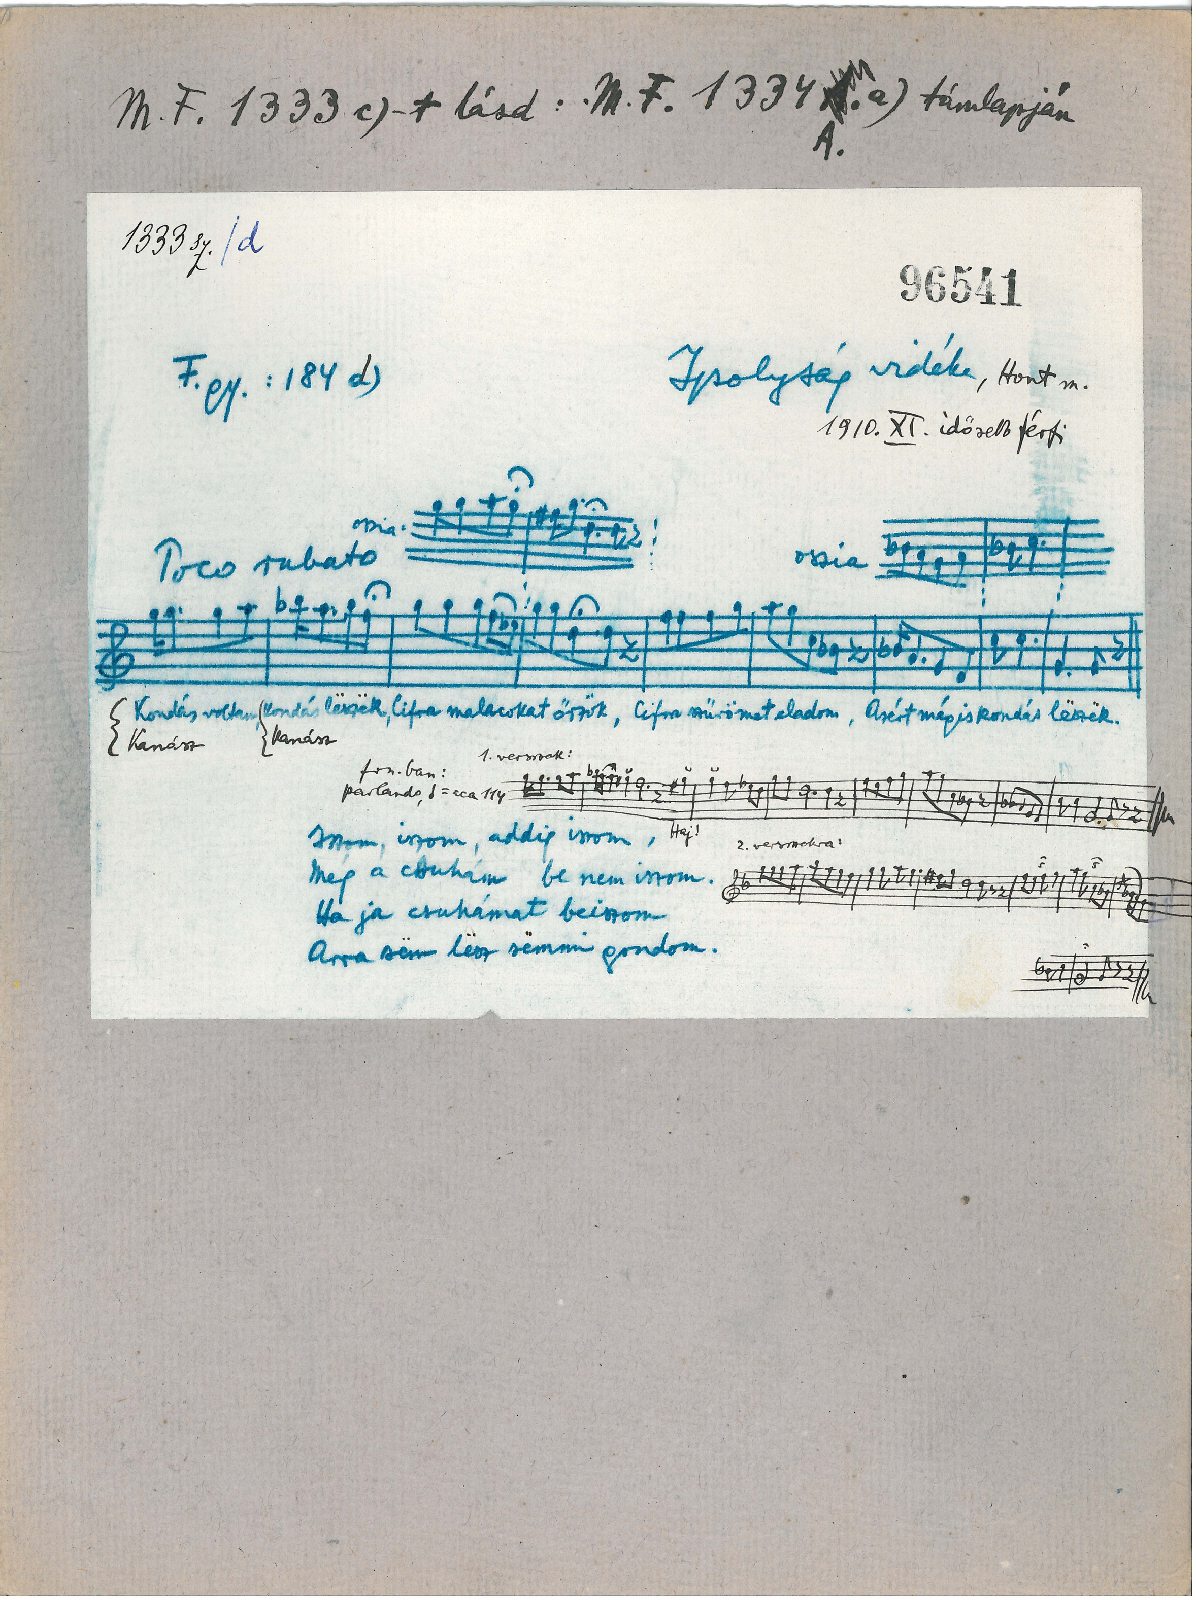 M. F. 1333 c)-t lásd : M. F. 1334 a) támlapján
A.
1333 sz. /d
96541
F. gy. : 184 d)
Ipolyság vidéke, Hont m.
1910. XI. idősebb férfi
ossia
Poco rubato
ossia
Kondás voltam, kondás lëszëk, Cifra malacokat őrzök, Cifra szűrömet eladom, Azért mégis kondás lëszëk.
Kanász Kanász
1. versszak:
fon.-ban:
parlando, ♩ = cca 114
Haj!
2. versszakra:
Iszom, iszom, addig iszom,
Még a csuhám be nem iszom.
Ha ja csuhámat beiszom
Arra sëm lësz sëmmi gondom.